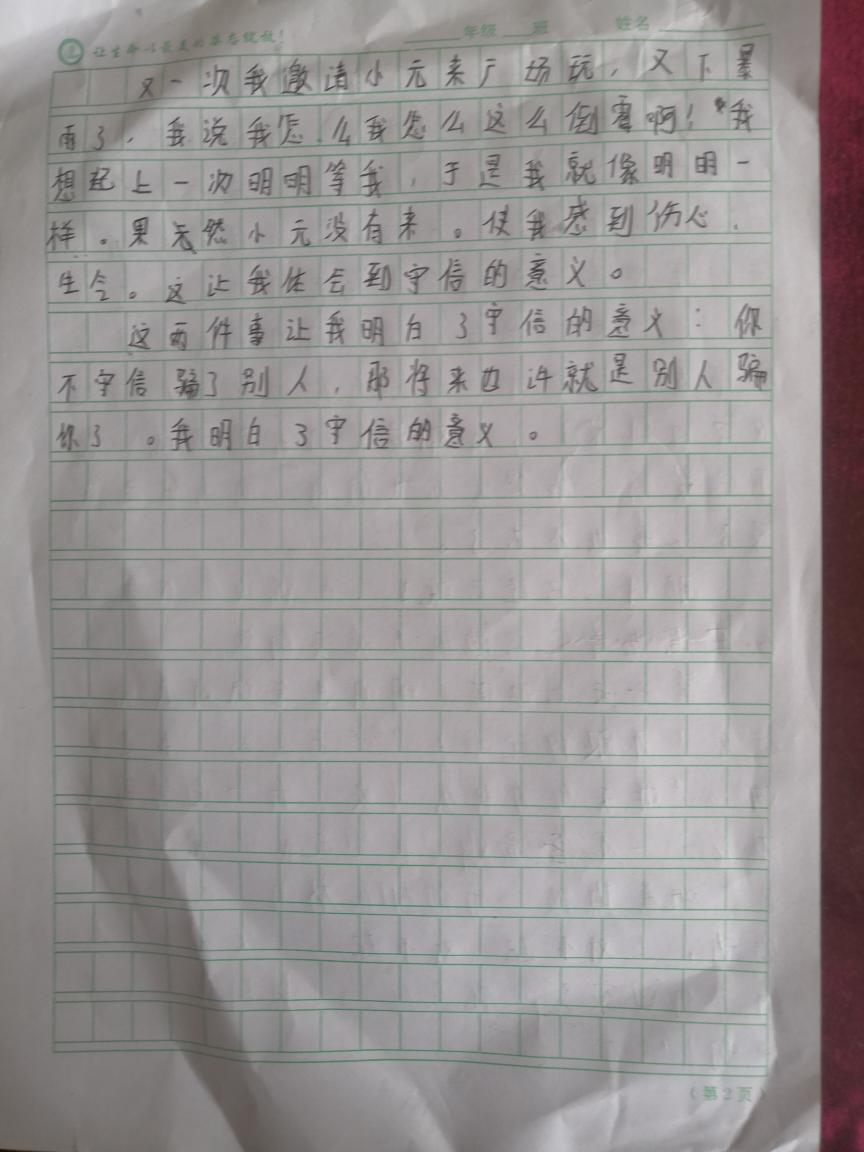 让生命以最美的姿态绽放!
年级 班 姓名
又一次我邀请小元来广场玩，又下暴
雨了，我说我怎么我怎么这么倒霉啊！"我
想起上一次明明等我，于是我就像明明一
样。果然小元没有来。使我感到伤心，
生令。这让我体会到守信的意义。
这两件事让我明白了守信的意义：你
不守信骗了别人，那将来也许就是别人骗
你了。我明白了守信的意义。
(第2页)